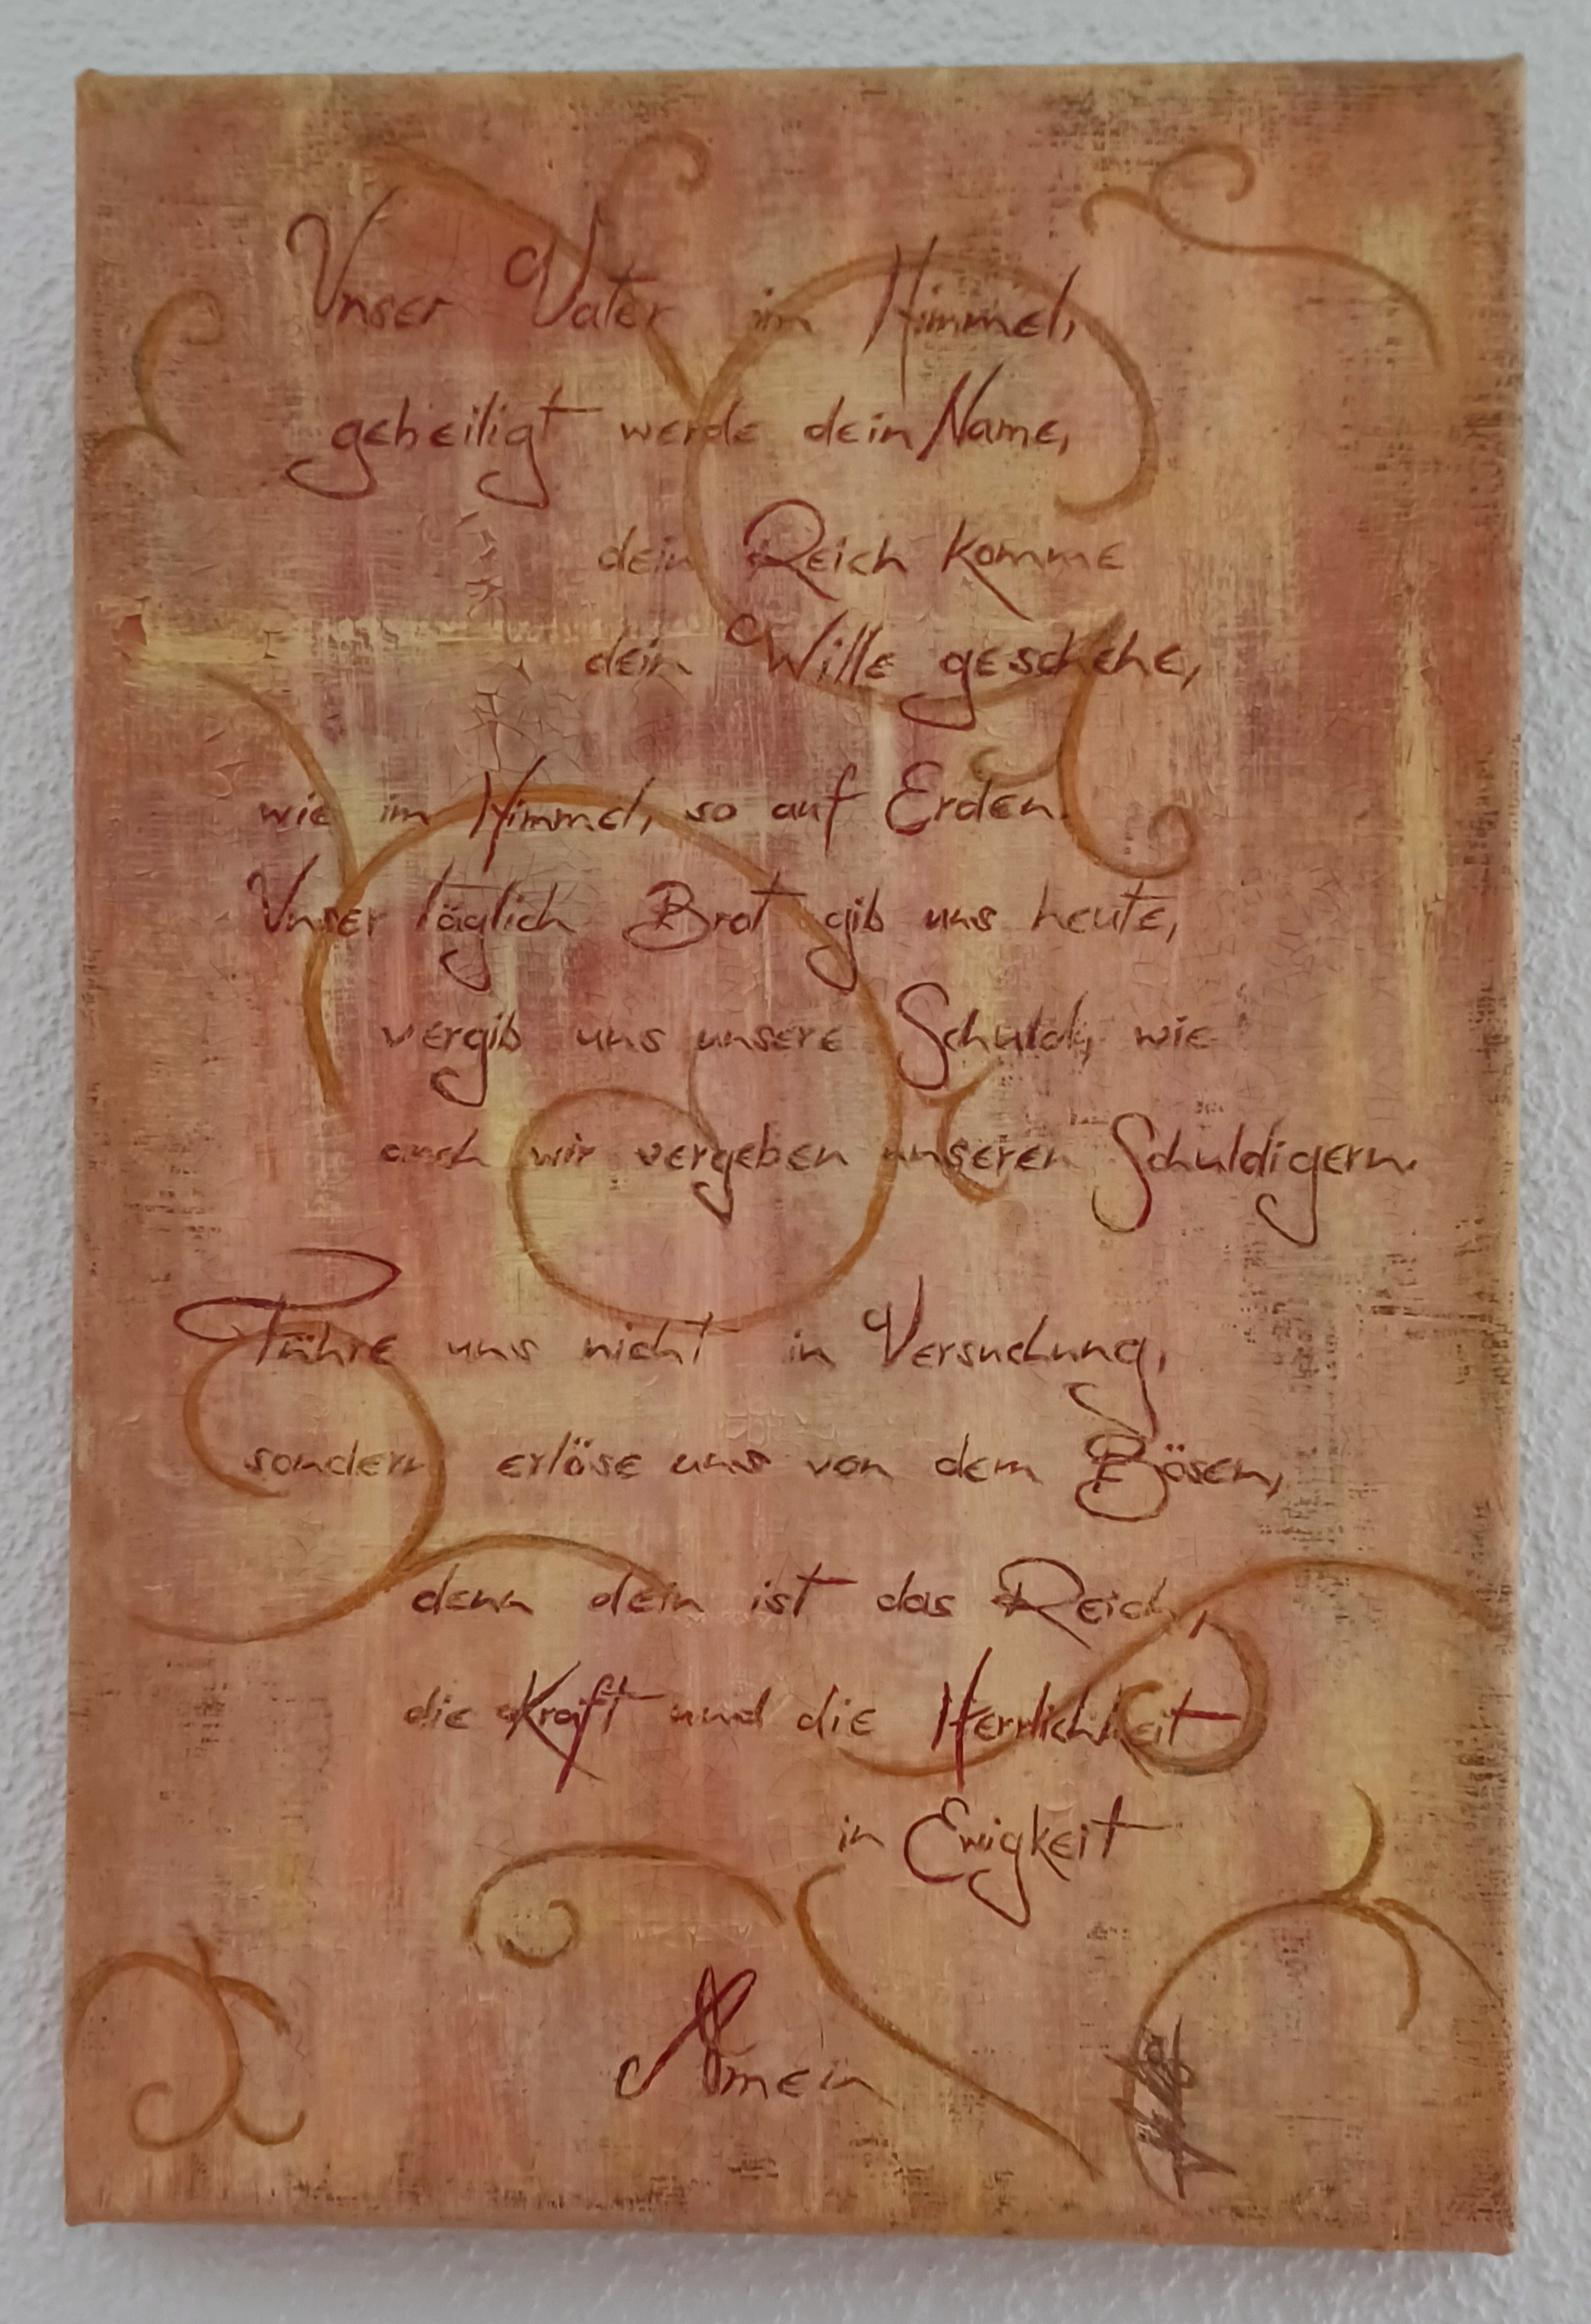 Unser Vater im Himmel,
geheiligt werde dein Name,
dein Reich komme
dein Wille geschehe,
wie im Himmel, so auf Erden.
Unser täglich Brot gib uns heute,
vergib uns unsere Schuld, wie
auch wir vergeben unseren Schuldigern.
Führe uns nicht in Versuchung,
sondern erlöse uns von dem Bösen,
denn dein ist das Reich,
die Kraft und die Herrlichkeit
in Ewigkeit
Amen